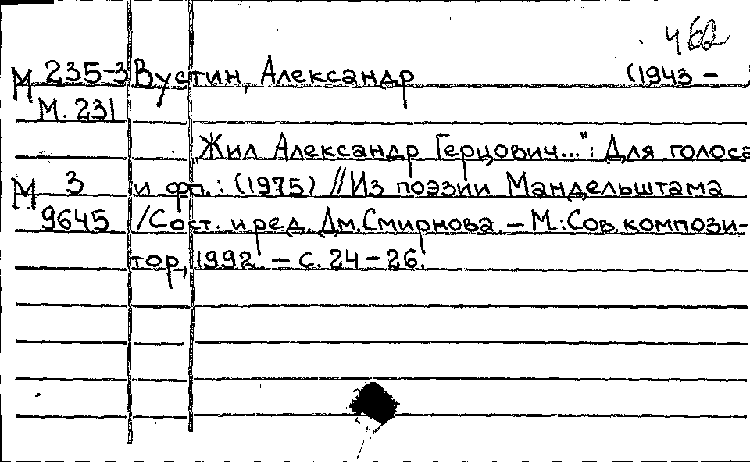 462
М 235-3 Вустин, Александр (1943 –
М. 231
„Жил Александр Герцович...": Для голоса
М 3 и фп.: (1975) // Из поэзии Мандельштама
9645 /Сост. и ред. Дм. Смирнова. – М.: Сов. компози-
тор, 1992. – С. 24–26.